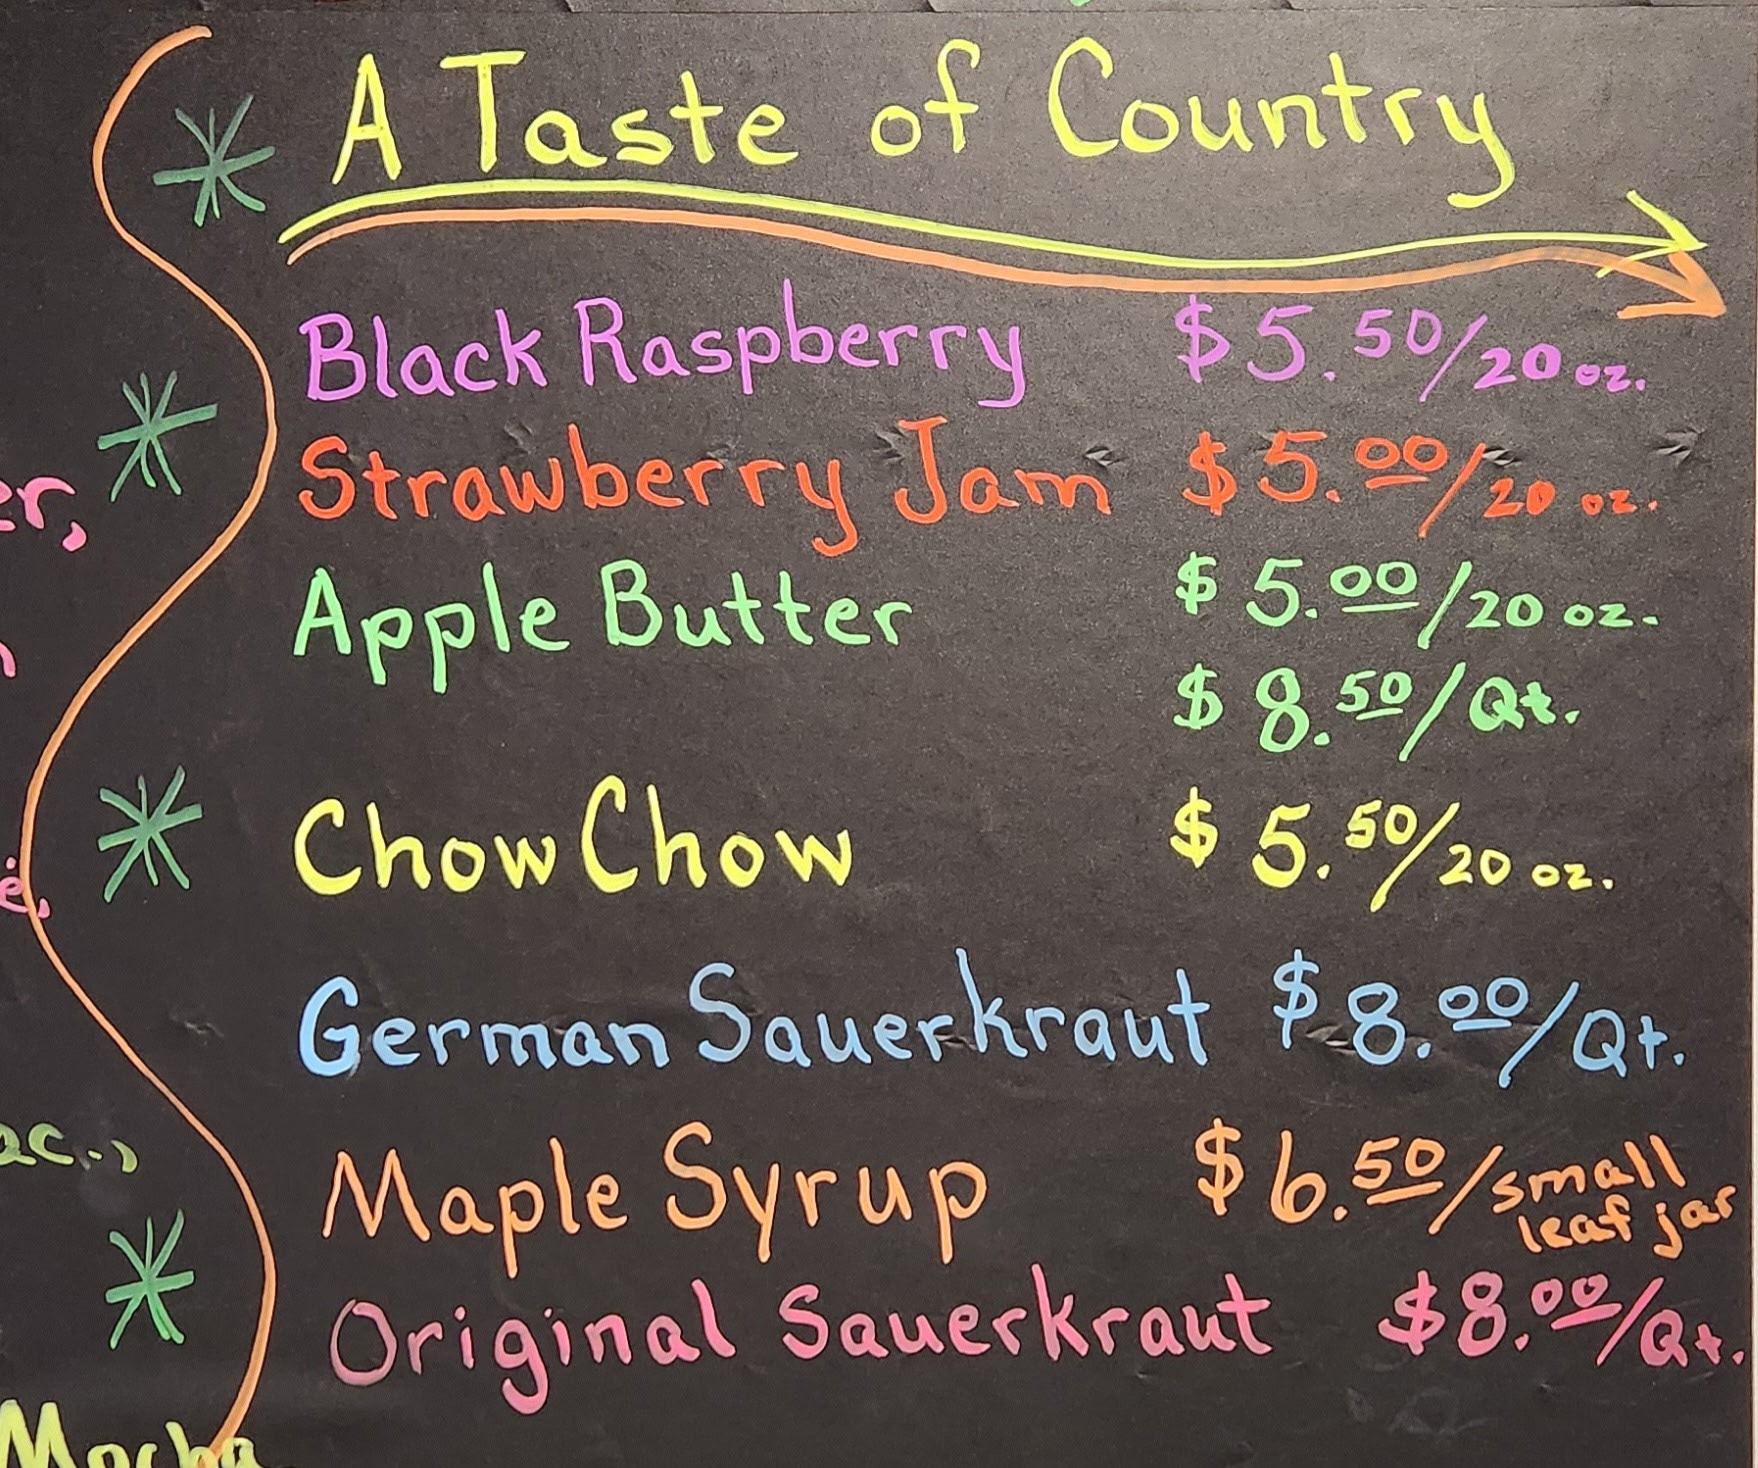 A Taste of Country
Black Raspberry $5.50/20 oz.
Strawberry Jam $5.00/20 oz.
Apple Butter $5.00/20 oz.
$8.50/Qt.
Chow Chow $5.50/20 oz.
German Sauerkraut $8.00/Qt.
Maple Syrup $6.50/small
leaf jar
Original Sauerkraut $8.00/Qt.
Mocha